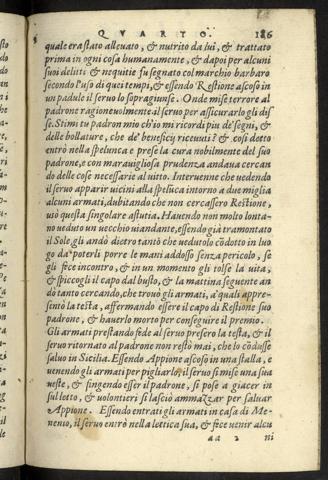 QVARTO. 186
quale era stato alleuato, & nutrito da lui, & trattato
prima in ogni cosa humanamente, & dapoi per alcuni
suoi delitti & nequitie fu segnato col marchio barbaro
secondo l'uso di quei tempi, & essendo Restione ascoso in
un padule il seruo lo sopragiunse. Onde mise terrore al
padrone ragioneuolmente il seruo per assicurarlo gli dis
se. Stimi tu padrò mio ch'iò mi ricordi piu de segni, &
delle bollature, che de' beneficij riceuuti? & cosi detto
entrò nella spelunca e prese la cura nobilmente del suo
padrone, e con marauigliosa prudenza andaua cercan
do delle cose necessarie al uitto. Interuenne che uedendo
il seruo apparir uicini alla spelũca intorno a due miglia
alcuni armati, dubitando che non cercassero Restione,
usò questa singolare astutia. Hauendo non molto lonta-
no ueduto un uecchio uiandante, essendo già tramontato
il Sole, gli andò dietro tantò che uedutolo cõdotto in luo
go da poterli porre le mani addosso senza pericolo, se
gli fece incontro, & in un momento gli tolse la uita,
& spiccogli il capo dal busto, & la mattina seguente an
dò tanto cercando, che trouò gli armati, a' quali appre-
sentò la testa, affermando essere il capo di Restione suo
padrone, & hauerlo morto per conseguire il premio.
Gli armati prestando fede al seruo presero la testa, & il
seruo ritornato al padrone non restò mai, che lo cõdusse
saluo in Sicilia. Essendo Appione ascoso in una stalla, e
uenendo gli armati per pigliarlo, il seruo si mise una sua
ueste, & singendo esser il padrone, si pose a giacer in
sul letto, & uolontieri si lasciò ammazzar per saluar
Appione. Essendo entrati gli armati in casa di Me-
nenio, il seruo entrò nella lettica sua, & fece uenir alcu
aa 2 ni